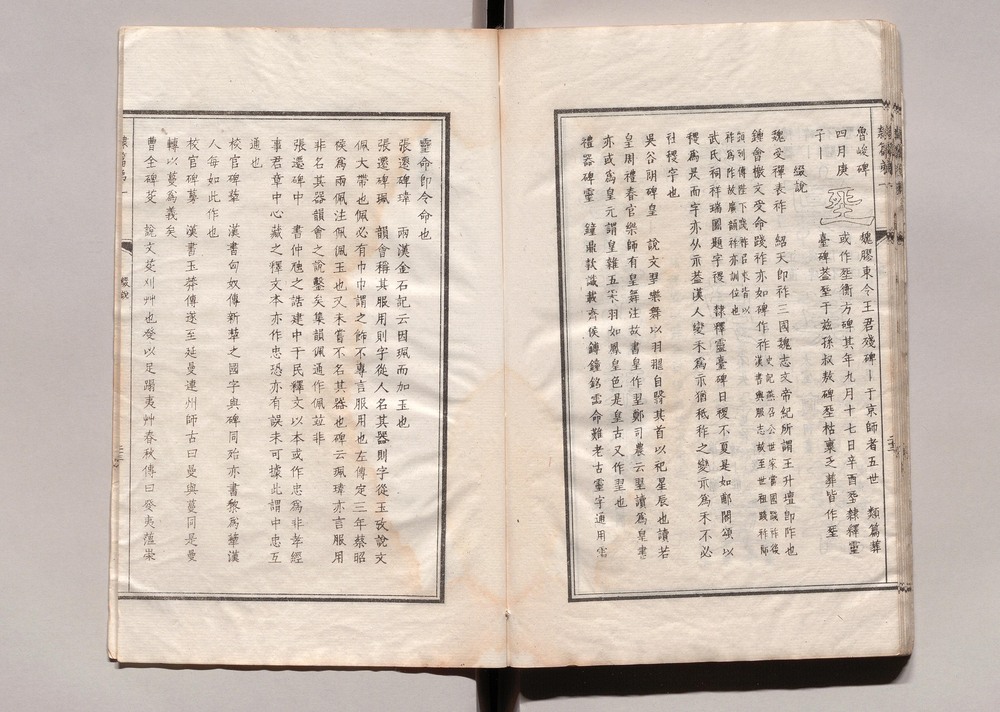 隸篇第一
曹峻碑
四月庚
子丨
魏膠東令王君殘碑丨于京師者五世 類篇葬
或作塟衡方碑其年九月十七日辛酉塟隸釋靈
臺碑葢塟于茲孫叔敖碑塟枯稟乏葬皆作塟
綴說
魏受禪表祚 紹天卽祚三國魏志文帝紀所謂王升壇卽阼也
鍾會檄文受命踐祚亦如碑作祚
武氏祠祥瑞圖題字稷 隸釋靈臺碑日稷不夏是如郙閣頌以
稷爲㚇而字亦从示葢漢人變禾爲示猶秪秨之變示爲禾不必
社稷字也
吳谷朗碑皇 說文翌樂舞以羽䎖自翳其首以祀星辰也讀若
皇周禮春官樂師有皇舞注故書皇作翌鄭司農云翌讀爲皇書
亦或爲皇元謂皇雜五采羽如鳳皇色是皇古又作翌也
禮器碑靈 鐘鼎款識載齊侯鎛鐘銘霝命難老古靈字通用霝
靈命卽令命也
張遷碑瑋 兩漢金石記云因珮而加玉也
張遷碑珮 韻會稱其服用則字從人名其器則字從玉攷說文
佩大帶也佩必有巾巾謂之飾不專言服用也左傳定三年蔡昭
侯爲兩佩注佩佩玉也又未嘗不名其器也碑云珮瑋亦言服用
非名其器韻會之說鑿矣集韻佩通作佩竝非
張遷碑中 書仲虺之誥建中于民釋文以本或作忠爲非孝經
事君章中心藏之釋文本亦作忠恐亦有誤未可據此謂中忠互
通也
校官碑犂 漢書匈奴傳新犂之國字與碑同殆亦書黎爲犂漢
人每如此作也
校官碑蔓 漢書王莽傳遂至延曼連州師古曰曼與蔓同是曼
轉以蔓爲義矣
曹全碑芟 說文芟刈艸也癹以足蹋夷艸春秋傳曰癹夷薀崇
隸篇第一
綴說